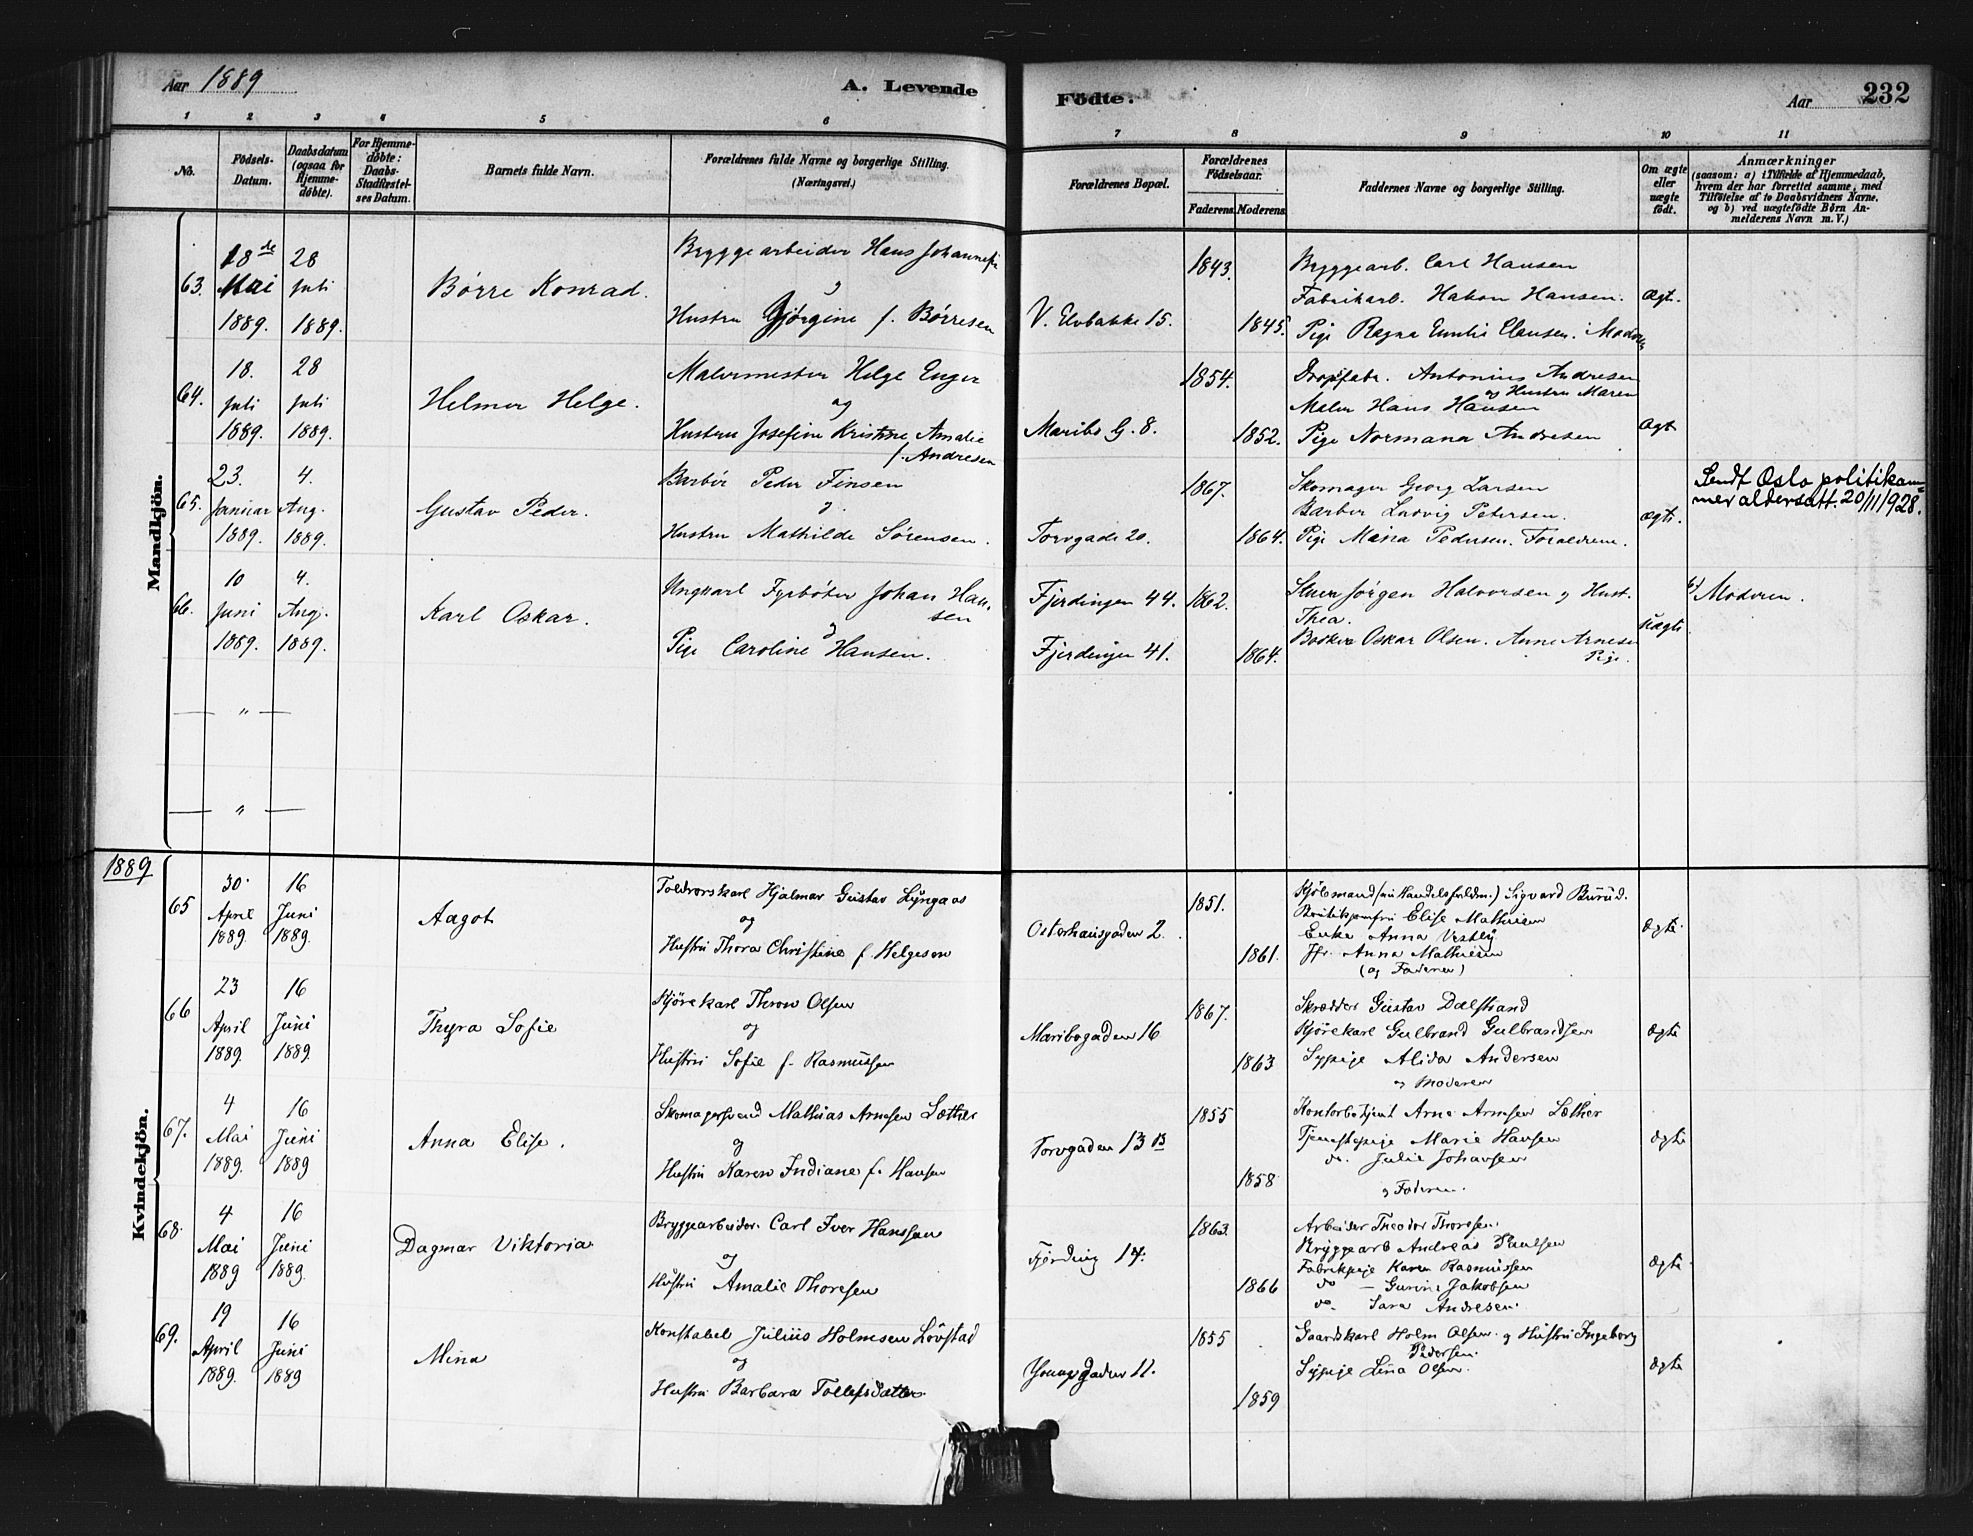 Aar 1889
A. Levende
Födte.
Aar
232
1 2 3 4 5 6 7 8 9 10 11
No.
Födsels-Datum.
Daabsdatum (ogsaa for Hjemme-döbte).
For Hjemme-döbte: Daabs-Stadfæstel-ses Datum.
Barnets fulde Navn.
Forældrenes fulde Navne og borgerlige Stilling. (Næringsvei.)
Forældrenes Bopæl.
Forældrenes Födselsaar.
Faderens. Moderens.
Faddernes Navne og borgerlige Stilling.
Om ægte eller uægte født.
Anmærkninger
(saasom: a) i Tilfælde af Hjemmedaab,
hvem der har forrettet samme, med
Tilföielse af to Daabsvidners Navne,
og b) ved uægtefödte Börn An-
melderens Navn m. V.)
Mandkjön.
63.
18de Mai 1889.
28 Juli 1889.
Børre Konrad.
Bryggearbeider Hans Johannes
Hustru Gjørgine f. Børresen
V. Elvbakke 15.
1843.
1845.
Bryggearb. Carl Hansen
Fabrikarb. Hakon Hansen.
Pige Ragna Emilie Clausen. Moderen
Ægt.
64.
18. Juli 1889.
28 Juli 1889.
Helmer Helge.
Malermester Helge Enger
og
Hustru Josefine Kristine Amalie
f. Andresen
Maribo G. 8.
1854.
1852.
Antonius Andresen
og Hustru Maren
Maler Hans Hansen
Pige Normana Andresen
Ægt
65.
23. Januar 1889.
4. Aug. 1889.
Gustav Peder.
Barbér Peder Finsen
Hustru Mathilde Sørensen.
Torvgade 20.
1867.
1864.
Skomager Georg Larsen
Barber Ludvig Petersen.
Pige Mina Pedersen. Forældrene.
ægte.
Sendt Oslo politikam-
mer aldersatt. 20/11 1928.
66.
10 Juni 1889.
4. Aug. 1889.
Karl Oskar.
Ungkarl Fyrbøter Johan Han-
sen
Pige Caroline Hansen.
Fjerdingen 44.
Fjerdingen 41.
1862.
1864.
Jørgen Halvorsen og Hust.
Thea.
Oskar Olsen. Anne Arnesen
Pige.
uægte
b) Moderen.
— " —
— " —
1889
Kvindekjön.
65
30. April 1889.
16 Juni 1889.
Aagot
Toldrorskarl Hjalmar Gustav Lyngaas
og
Hustru Thora Christine f. Helgesen
Osterhausgaden 2.
1851.
1861.
Kjøbmand (nu Handelsfuldm.) Sigvard Burud.
Butikjomfru Elise Mathisen
Enke Anna Vestby
Jfr. Anna Mathisen
(og Faderen)
ægte
66
23 April 1889.
16 Juni 1889.
Thyra Sofie
Kjørekarl Thron Olsen
og
Hustru Sofie f. Rasmussen
Maribogaden 16
1867.
1863
Skrædder Gustav Dalstrand
Kjørekarl Gulbrand Gulbrandsen
Sypige Alida Andersen
og Moderen
ægte
67.
4 Mai 1889.
16 Juni 1889
Anna Elise.
Skomagersvend Mathias Arnesen Sæther
og
Hustru Karen Indiane f. Hansen
Torvgaden 13 B
1855
1858
Kontorbetjent Arne Arnesen Sæther
Tjenestepige Marie Hansen
do. Julie Johansen
og Faderen.
ægte
68.
4 Mai 1889
16 Juni 1889.
Dagmar Viktoria
Bryggearbeider Carl Iver Hanssen
og
Hustru Amalie Thoresen
Fjerding 14.
1863.
1866
Arbeider Theodor Thoresen.
Bryggearb Andreas Paulsen
Fabrikpige Karen Rasmussen
do — Gurine Jakobsen
do. Sara Andresen.
ægte
69.
19 April 1889.
16 Juni 1889
Mina
Konstabel Julius Holmsen Lövstad
og
Hustru Barbara Tollefsdatter
Youngsgaden 11.
1855
1859
Gaardskarl Holm Olsen og Hustru Ingeborg
Pedersen.
Sypige Lina Olsen.
ægte